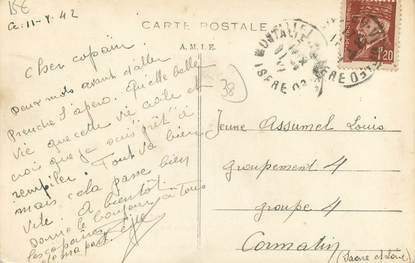 15€
Ce 11-8-42
CARTE POSTALE
A.M.I.E.
Cher copain
Deux mots avant d'aller
Prendre l'apéro. Quelle belle
vie que cette vie civile et
crois que je suis prêt à
rempiler. Tout va bien
mais cela passe bien
vite. A bientôt
Donne le bonjour à tous
les copains
de ma part
38
1F20
ISERE
Jeune Assumel Louis
groupement 4
groupe 4
Cormatin
(Saone et Loire)